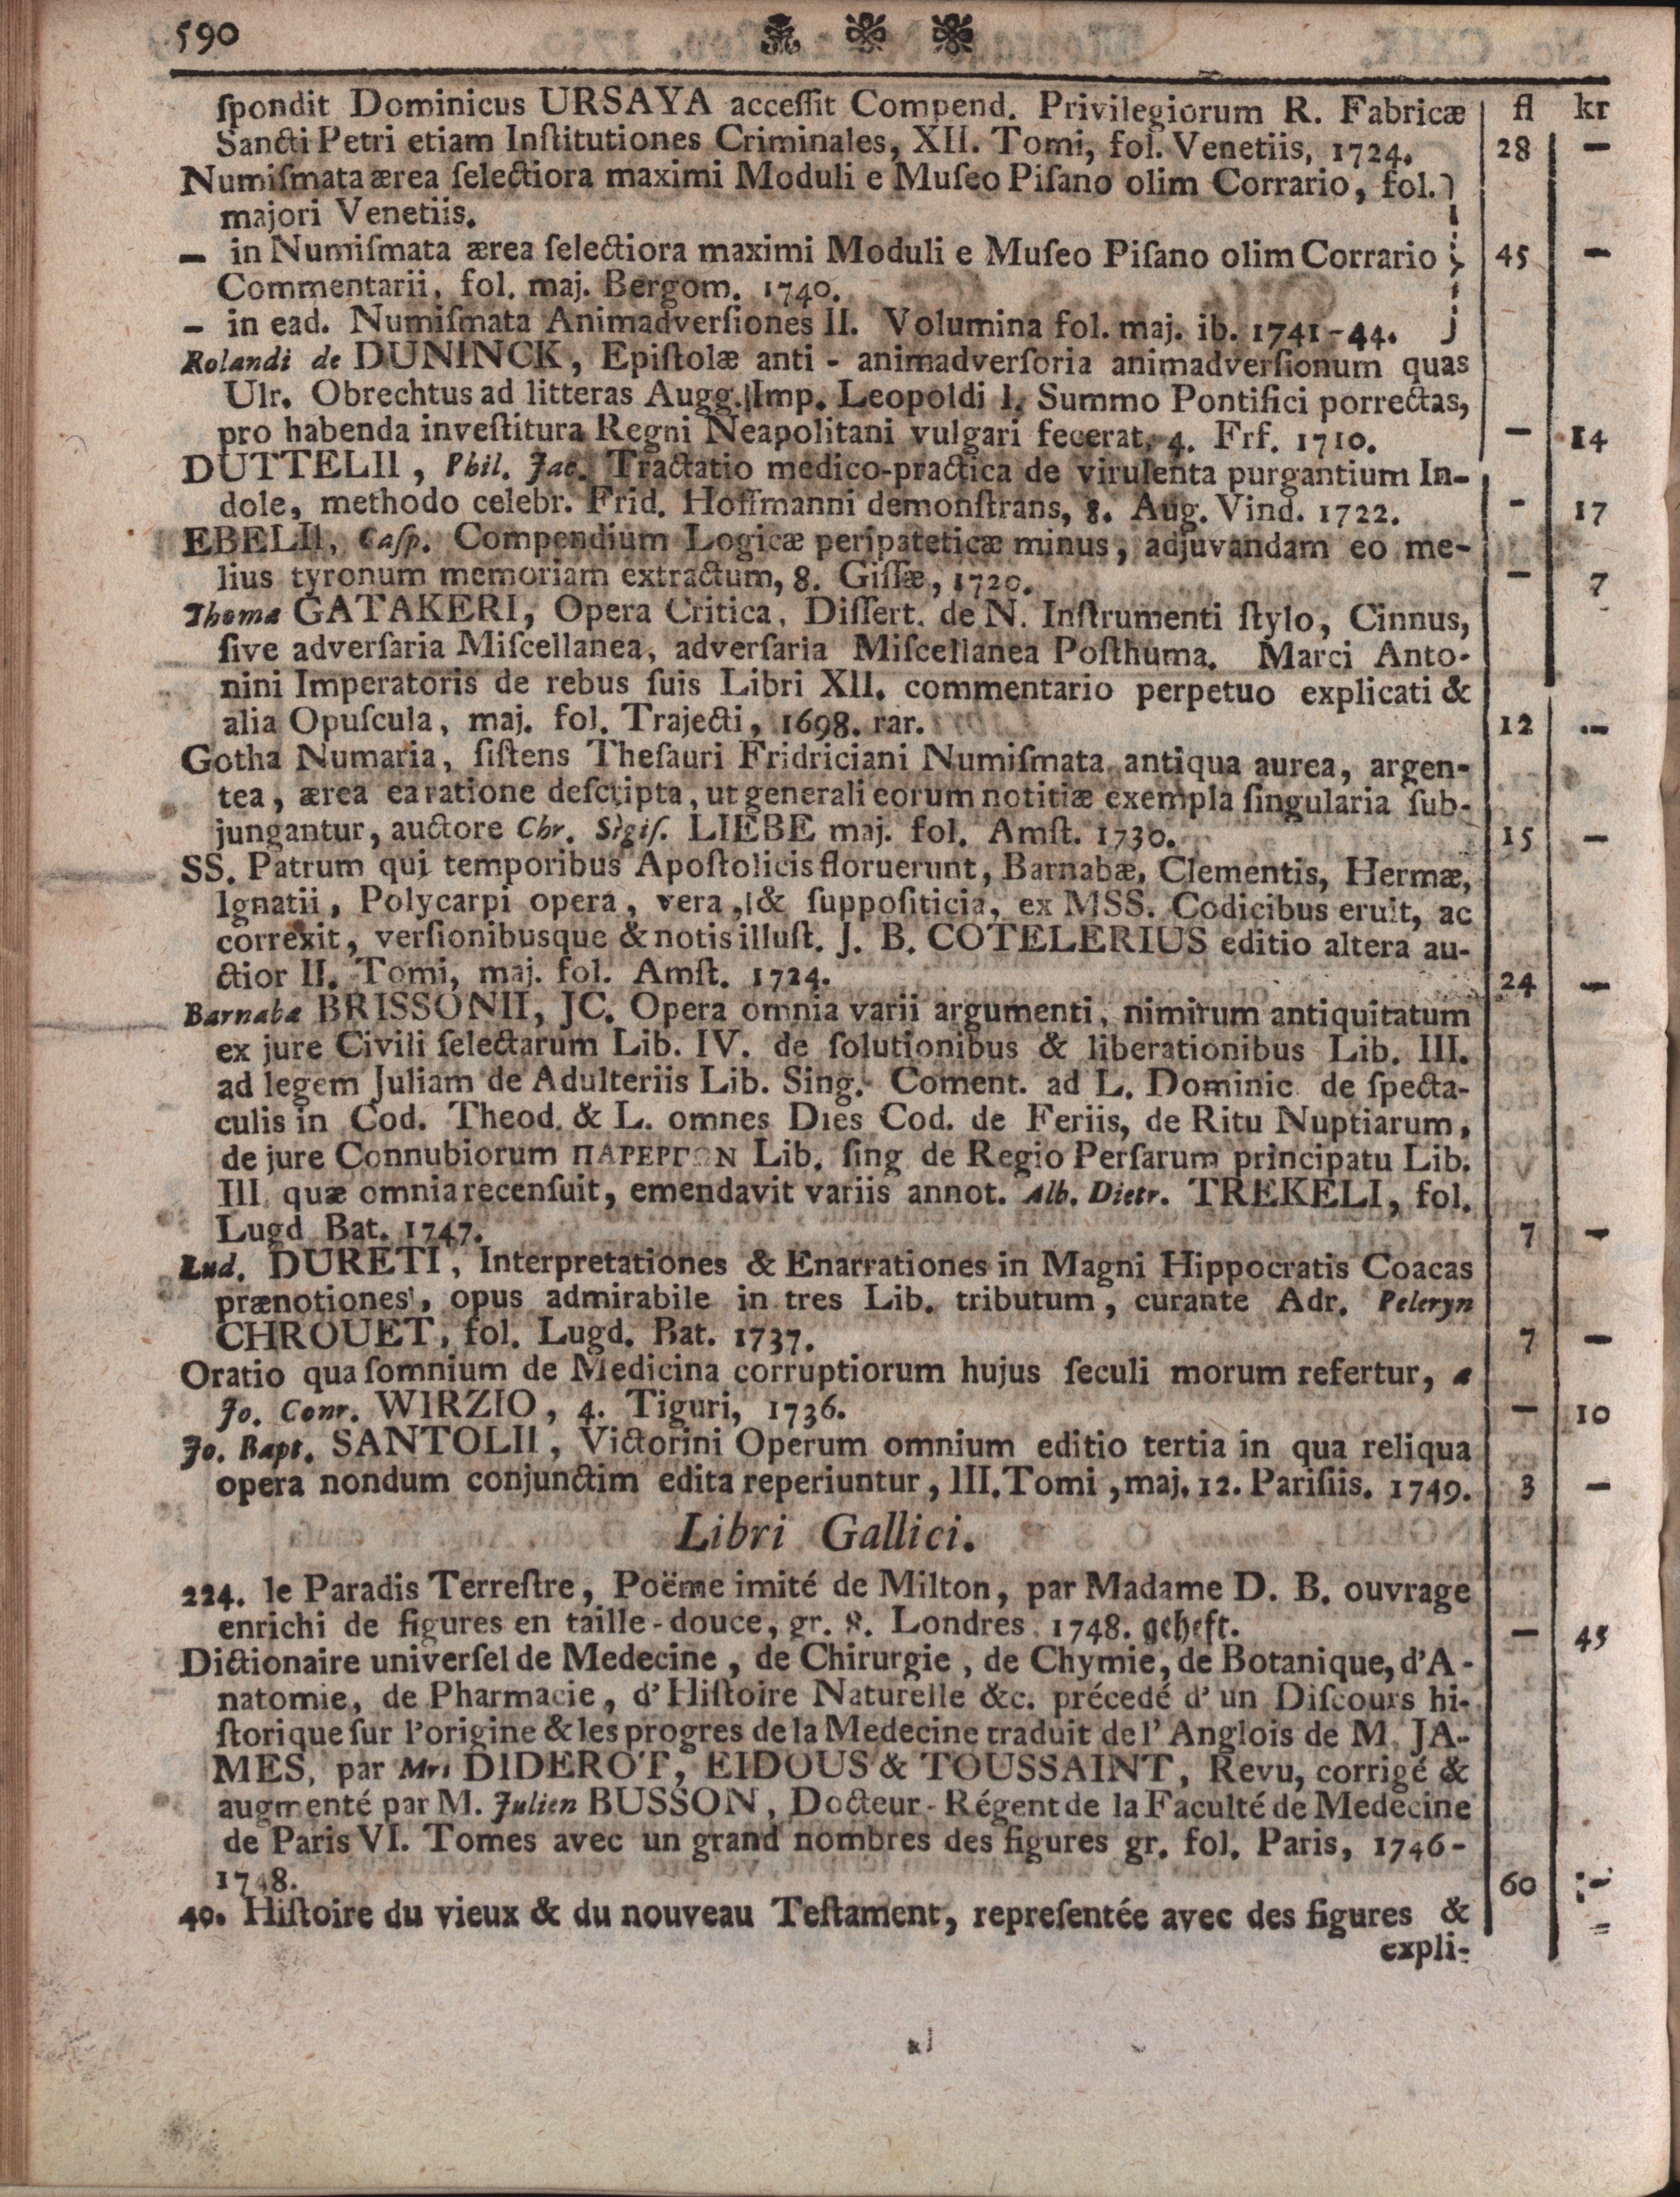 590
ſpondit Dominicus URSAYA acceſſit Compend. Privilegiorum R. Fabricæ fl kr
Sancti Petri etiam Inſtitutiones Criminales, XII. Tomi, fol. Venetiis, 1724. 28 —
Numiſmata ærea ſelectiora maximi Moduli e Muſeo Piſano olim Corrario, fol.
majori Venetiis.
— in Numiſmata ærea ſelectiora maximi Moduli e Muſeo Piſano olim Corrario 45 —
Commentarii, fol. maj. Bergom. 1740.
— in ead. Numiſmata Animadverſiones II. Volumina fol. maj. ib. 1741-44.
Rolandi de DUNINCK, Epiſtolæ anti - animadverſoria animadverſionum quas
Ulr. Obrechtus ad litteras Augg. Imp. Leopoldi I. Summo Pontifici porrectas,
pro habenda inveſtitura Regni Neapolitani vulgari fecerat, 4. Frf. 1710. — 14
DUTTELII, Phil. Jac. Tractatio medico-practica de virulenta purgantium In-
dole, methodo celebr. Frid. Hoffmanni demonſtrans, 8. Aug. Vind. 1722. — 17
EBELII, Caſp. Compendium Logicæ peripateticæ minus, adjuvandam eo me-
lius tyronum memoriam extractum, 8. Giſſæ, 1720. — 7
Thomæ GATAKERI, Opera Critica, Diſſert. de N. Inſtrumenti ſtylo, Cinnus,
ſive adverſaria Miſcellanea, adverſaria Miſcellanea Poſthuma. Marci Anto-
nini Imperatoris de rebus ſuis Libri XII. commentario perpetuo explicati &
alia Opuſcula, maj. fol. Trajecti, 1698. rar. 12 —
Gotha Numaria, ſiſtens Theſauri Fridriciani Numiſmata antiqua aurea, argen-
tea, ærea ea ratione deſcripta, ut generali eorum notitiæ exempla ſingularia ſub-
jungantur, auctore Chr. Sigiſ. LIEBE maj. fol. Amſt. 1730. 15 —
SS. Patrum qui temporibus Apoſtolicis floruerunt, Barnabæ, Clementis, Hermæ,
Ignatii, Polycarpi opera, vera, & ſuppoſiticia, ex MSS. Codicibus eruit, ac
correxit, verſionibusque & notis illuſt. J. B. COTELERIUS editio altera au-
ctior II. Tomi, maj. fol. Amſt. 1724. 24 —
Barnabæ BRISSONII, JC. Opera omnia varii argumenti, nimirum antiquitatum
ex jure Civili ſelectarum Lib. IV. de ſolutionibus & liberationibus Lib. III.
ad legem Juliam de Adulteriis Lib. Sing. Coment. ad L. Dominic de ſpecta-
culis in Cod. Theod. & L. omnes Dies Cod. de Feriis, de Ritu Nuptiarum,
de jure Connubiorum ΠΑΡΕΡΓΩΝ Lib. ſing de Regio Perſarum principatu Lib.
III. quæ omnia recenſuit, emendavit variis annot. Alb. Dietr. TREKELI, fol.
Lugd Bat. 1747. 7 —
Lud. DURETI, Interpretationes & Enarrationes in Magni Hippocratis Coacas
prænotiones, opus admirabile in tres Lib. tributum, curante Adr. Peleryn
CHROUET, fol. Lugd. Bat. 1737. 7 —
Oratio qua ſomnium de Medicina corruptiorum hujus ſeculi morum refertur, a
Jo. Conr. WIRZIO, 4. Tiguri, 1736. — 10
Jo. Bapt. SANTOLII, Victorini Operum omnium editio tertia in qua reliqua
opera nondum conjunctim edita reperiuntur, III. Tomi, maj. 12. Pariſiis. 1749. 3 —
Libri Gallici.
224. le Paradis Terreſtre, Poëme imité de Milton, par Madame D. B. ouvrage
enrichi de figures en taille-douce, gr. 8. Londres 1748. geheft. — 45
Dictionaire univerſel de Medecine, de Chirurgie, de Chymie, de Botanique, d'A-
natomie, de Pharmacie, d'Hiſtoire Naturelle &c. précedé d'un Diſcours hi-
ſtorique ſur l'origine & les progres de la Medecine traduit de l'Anglois de M. JA-
MES, par Mrs DIDEROT, EIDOUS & TOUSSAINT, Revu, corrigé &
augmenté par M. Julien BUSSON, Docteur-Régent de la Faculté de Medecine
de Paris VI. Tomes avec un grand nombres des figures gr. fol. Paris, 1746-
1748. 60 —
40. Hiſtoire du vieux & du nouveau Teſtament, repreſentée avec des figures &
expli-